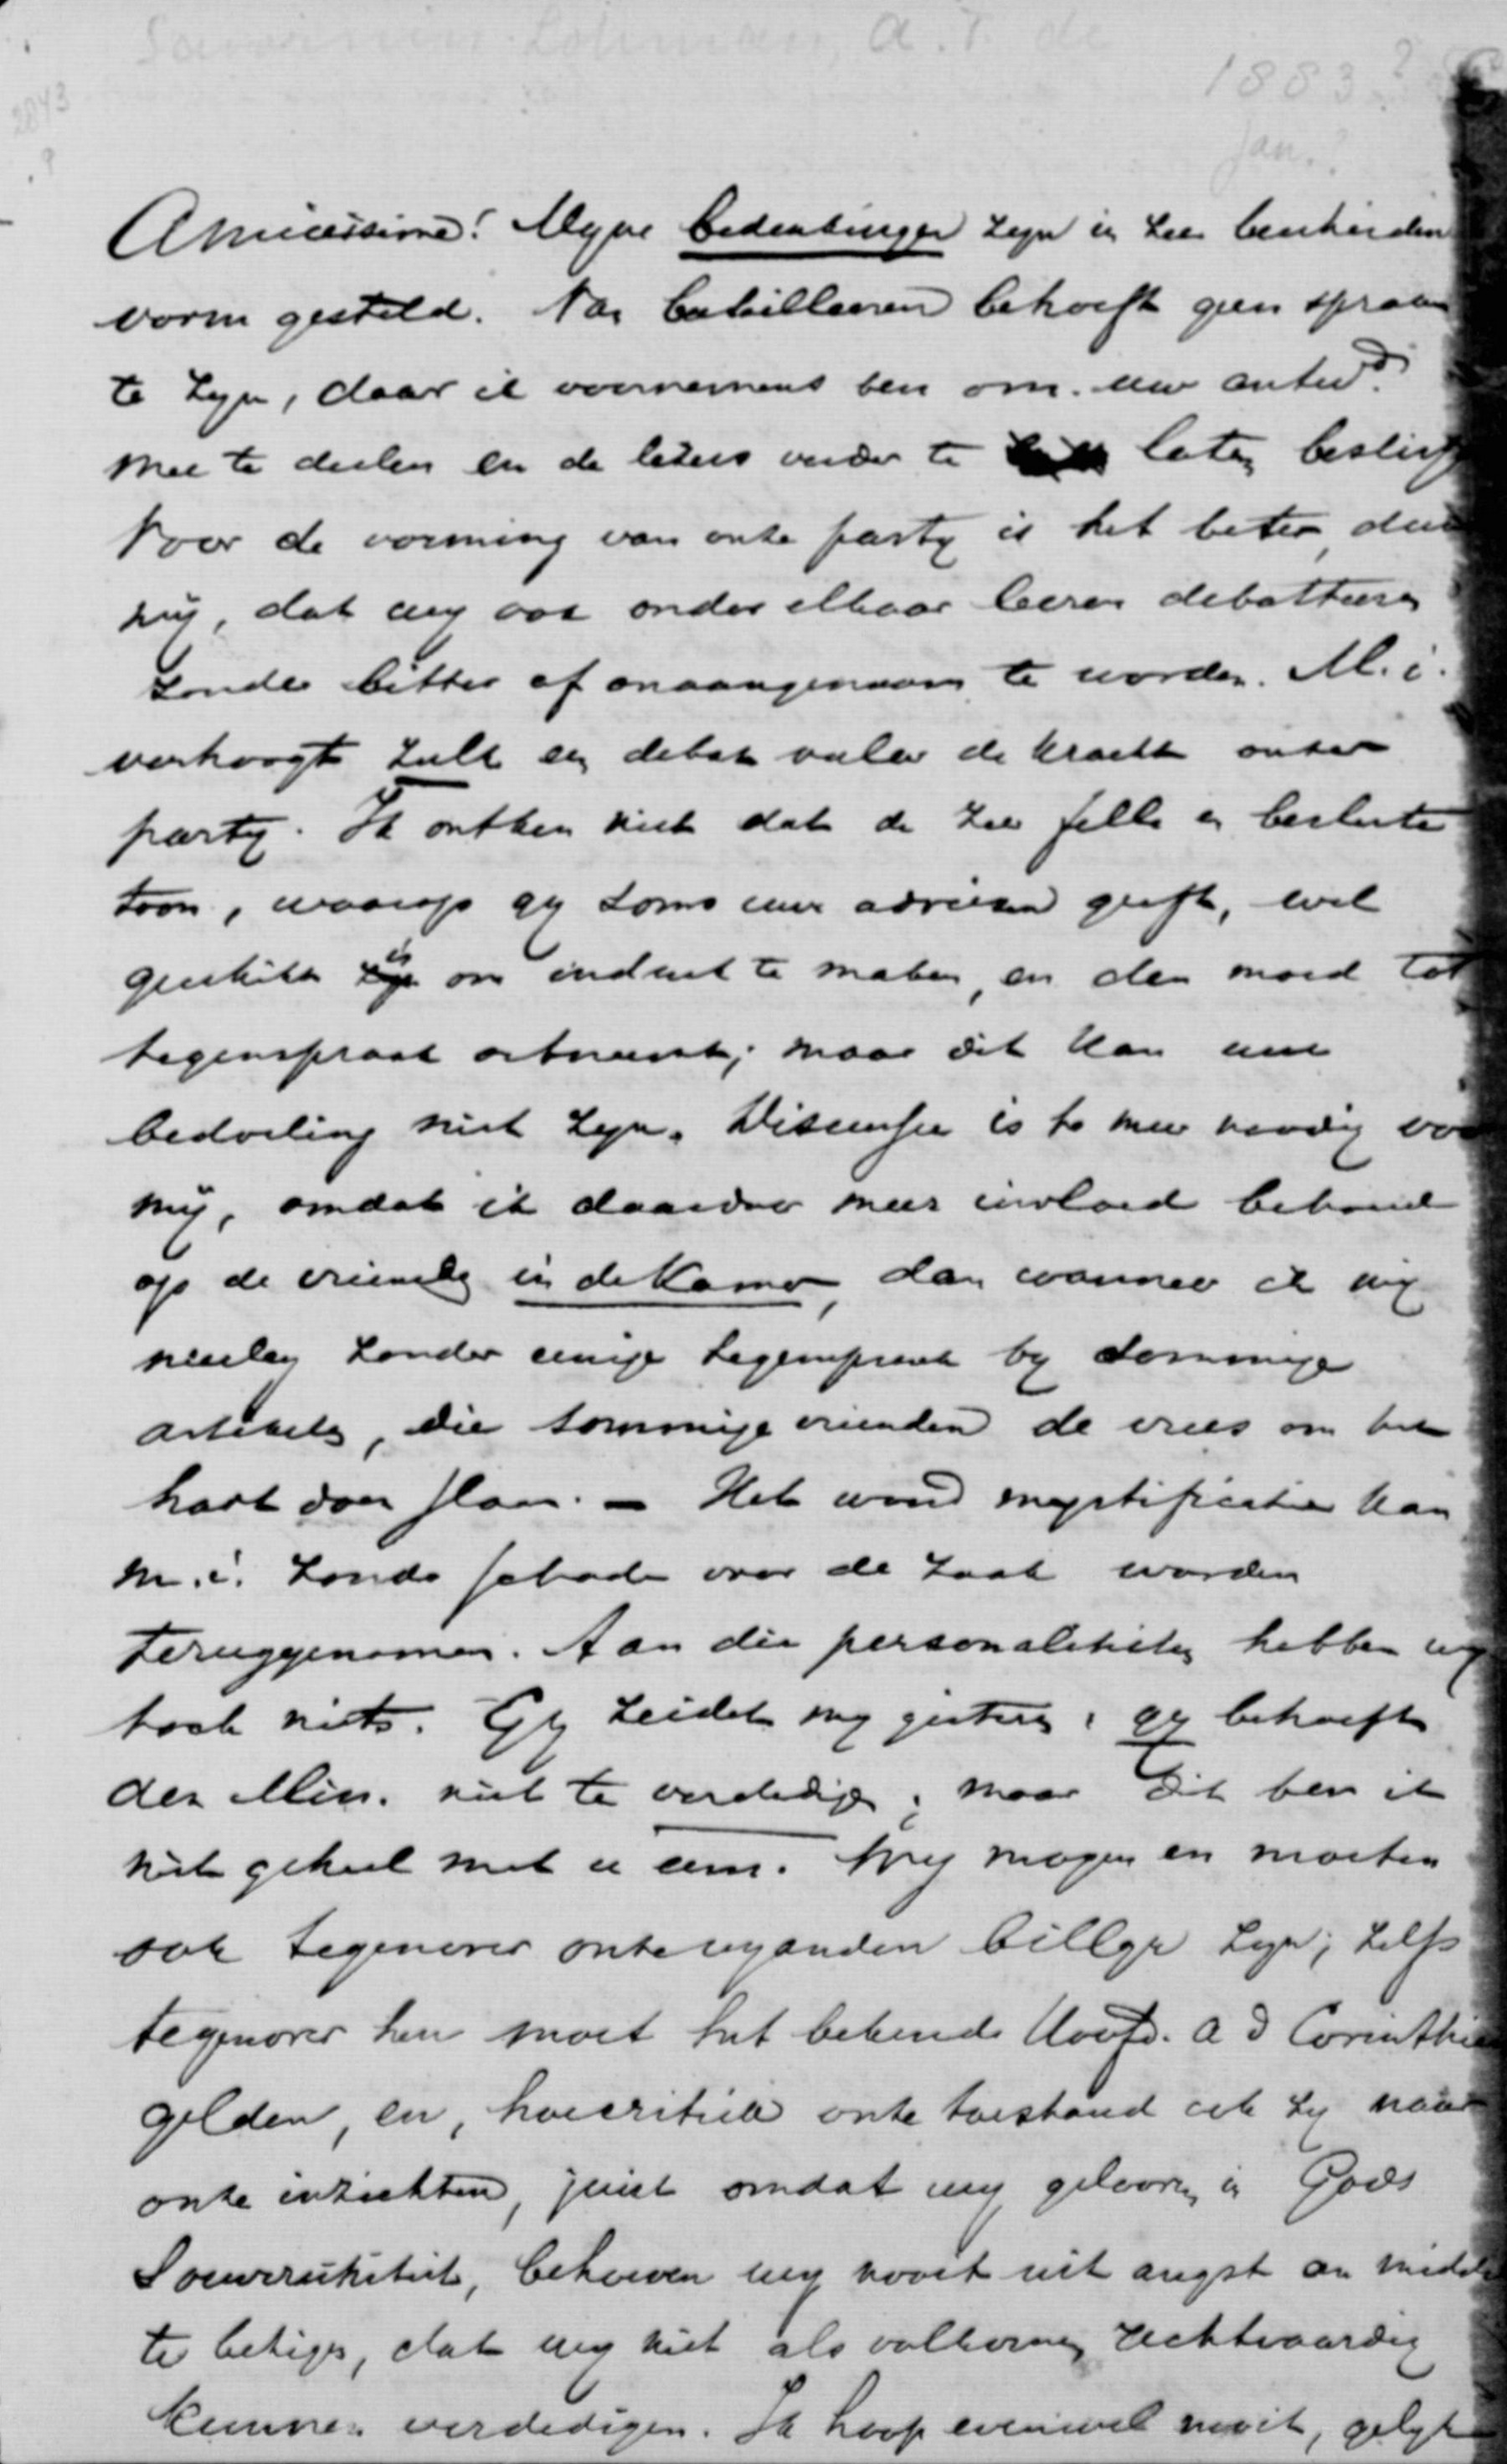 Savornin Lohman, A. F. de
1883?
Jan.?
2843
?
Amicissime! Myne bedenkingen zyn in zeer bescheiden
vorm gesteld. Van bakkeleien behoeft geen spraak
te zyn, daar ik voornemens ben om uw antwd.
mee te deelen en de lezers verder te laten beslissen
Voor de vorming van onze party is het beter, dunkt
my, dat wy ook onder elkaar leeren debatteeren
zonder bitter of onaangenaam te worden. M. i.
verhoogt zulk een debat veeleer de kracht onzer
party. Ik ontken niet dat de zeer felle en besliste
toon, waarop gy soms uwe adviezen geeft, wel
geschikt is om indruk te maken, en den moed tot
tegenspraak ontneemt; maar dit kan uwe
bedoeling niet zyn. Discussie is te meer noodig voor
my, omdat ik daardoor meer invloed behoud
op de vrienden in de Kamer, dan wanneer ik my
neerleg zonder eenige tegenspraak by sommige
artikels, die sommige vrienden de vrees om het
hart doen slaan. — Het woord mystificatie kan
m. i. zonder schade voor de zaak worden
teruggenomen. Aan die personaliteiten hebben wy
toch niets. Gy zeidet my gisteren: gy behoeft
den Min. niet te verdedigen; maar dit ben ik
niet geheel met u eens. Wy mogen en moeten
ook tegenover onze vyanden billyk zyn; zelfs
tegenover hen moet het bekende Hoofd. ad Corinthios
gelden, en, hoe critiek onze toestand ook zy naar
onze inzichten, juist omdat wy gelooven in Gods
Souvereiniteit, behoeven wy nooit uit angst een middel
te bezigen, dat wy niet als volkomen rechtvaardig
kunnen verdedigen. Ik hoop evenwel nooit, gelyk